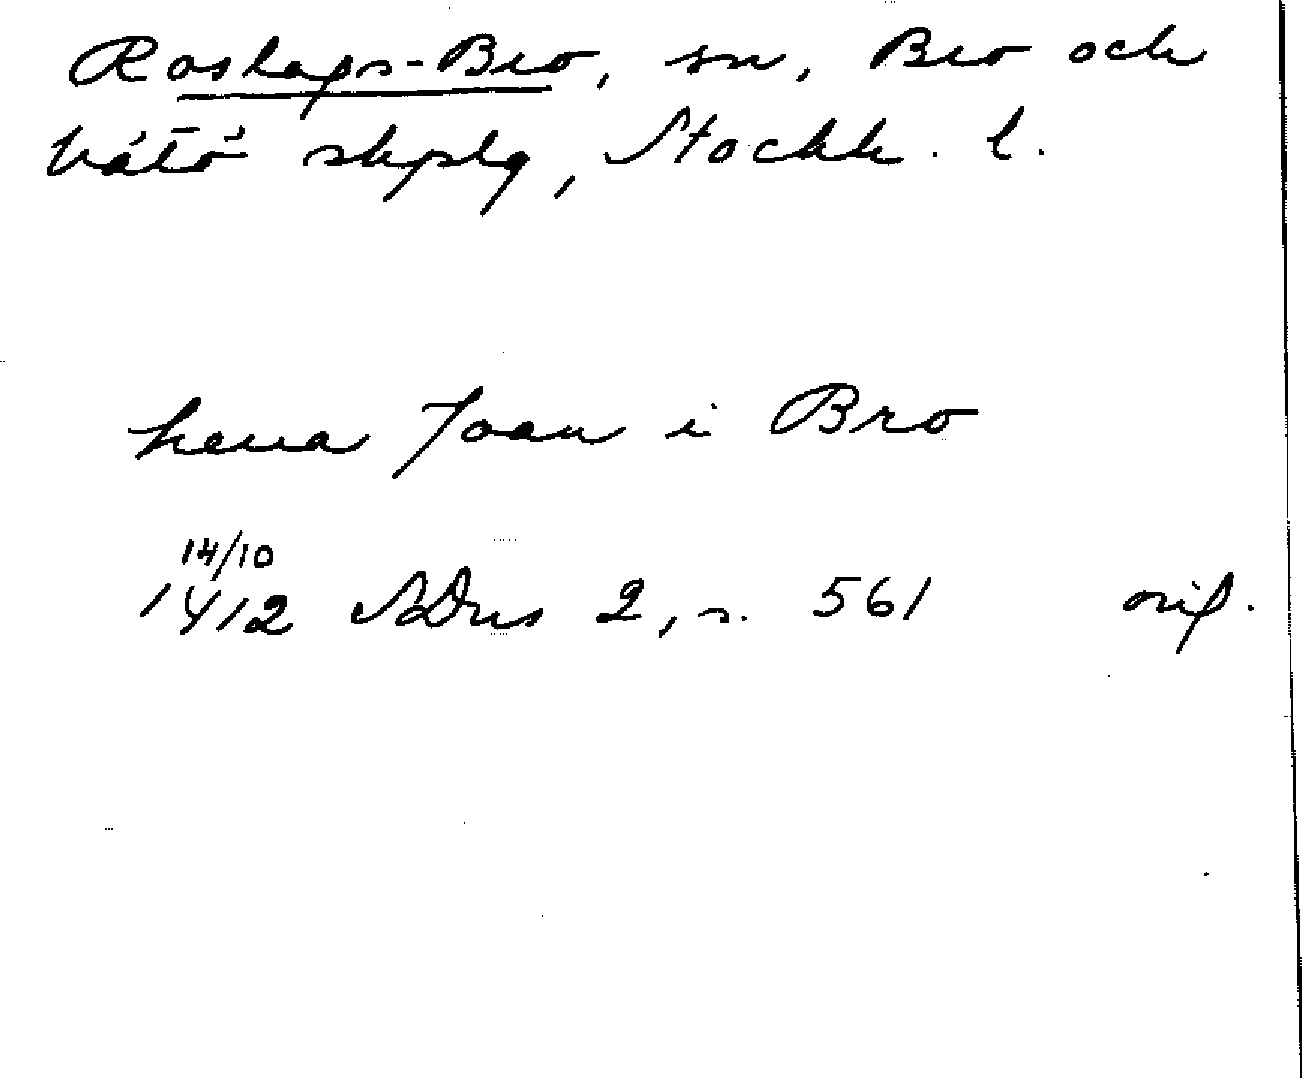 Roslags-Bro, sn, Bro och
Vätö skplg, Stockh. l.
herra Joan i Bro
14/10
1412 SDns 2, s. 561 orig.